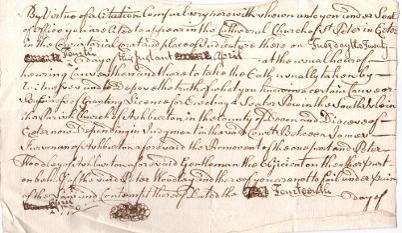 By Virtue of a Citation Compulsory herewith shown unto you under Seal
of Office you are Cited to appear in the Cathedral Church of St Peter in Exon
in the Consistorial Court and place of Judicature there on Tuesday the Twenty
day of this Instant April at the usual hour of
hearing Causes then and there to take the Oath usually taken by
Witnesses and to depose the truth of what you know in a certain Cause or
Business of Granting Licence for Erecting a Seat or Pew in the South Isle in
the Parish Church of Ashburton in the County of Devon and Diocess of
Exeter now Depending in Judgment in the said Court Between James
Sherman of Ashburton aforesaid the Promovent of the one part and Peter
Woodley of Ashburton aforesaid Gentleman the Objicient on the other part
on behalf of the said Peter Woodley and hereof you are not to fail under pain
of the Law and Contempt thereof Dated the Fourteenth
day of
April